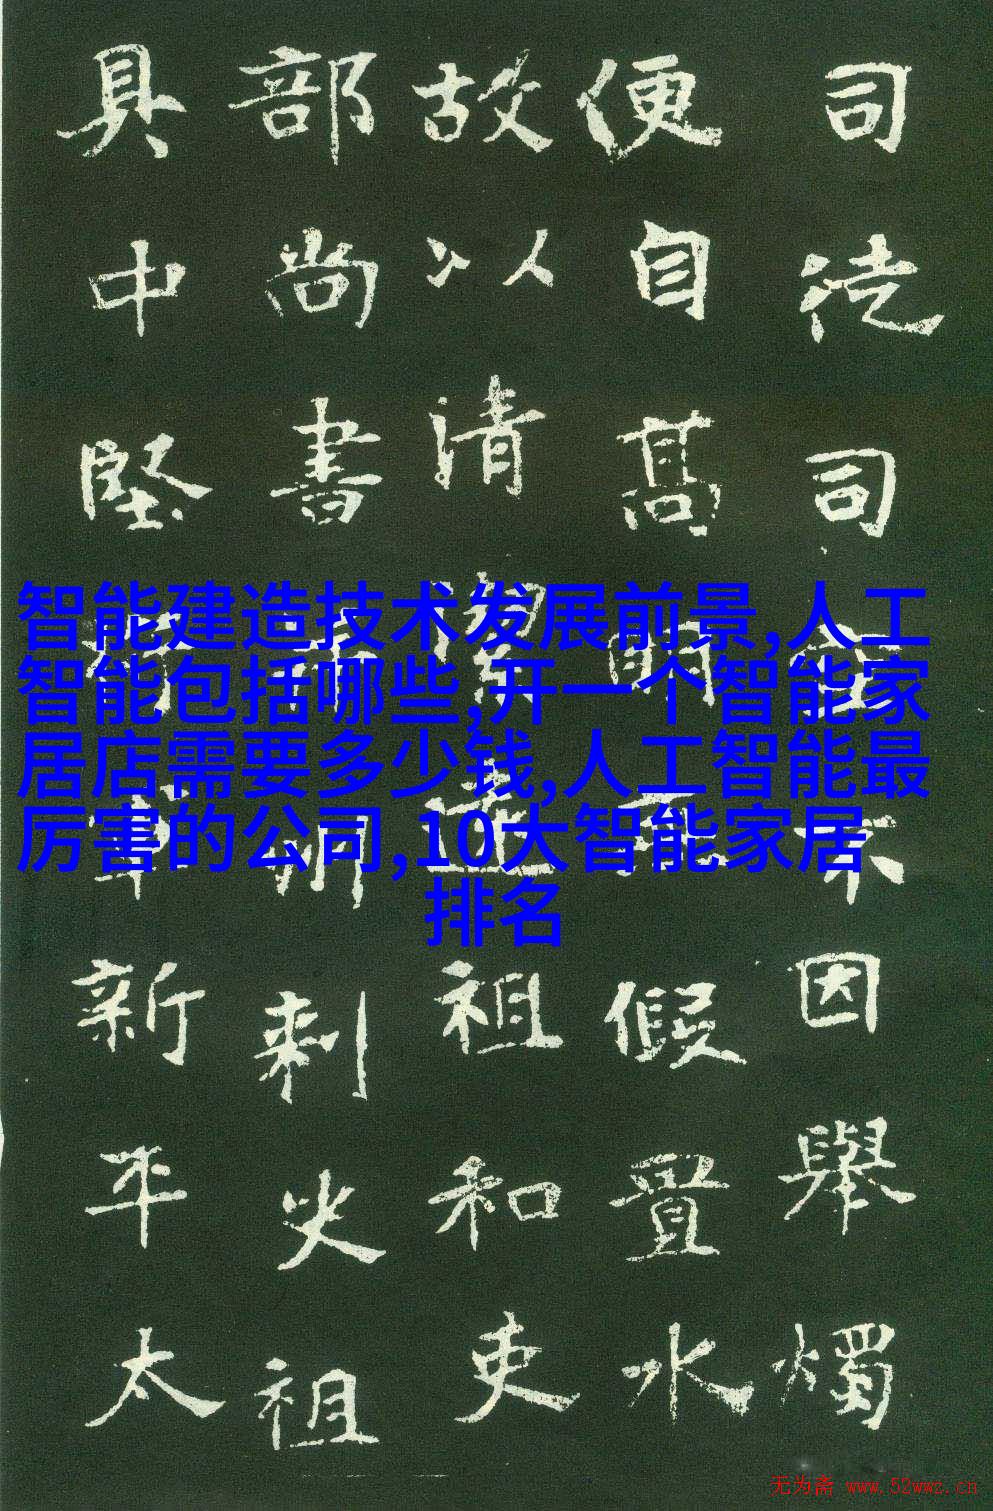 司徒司不因舉燭
便自高明不假置水
故以清祖和吏
部尚書州刺史祖
具中堅將軍新平太
智能建造技术发展前景,人工
智能包括哪些,开一个智能家
居店需要多少钱,人工智能最
厉害的公司,10大智能家居
排名
无为斋 www.52wwz.cn